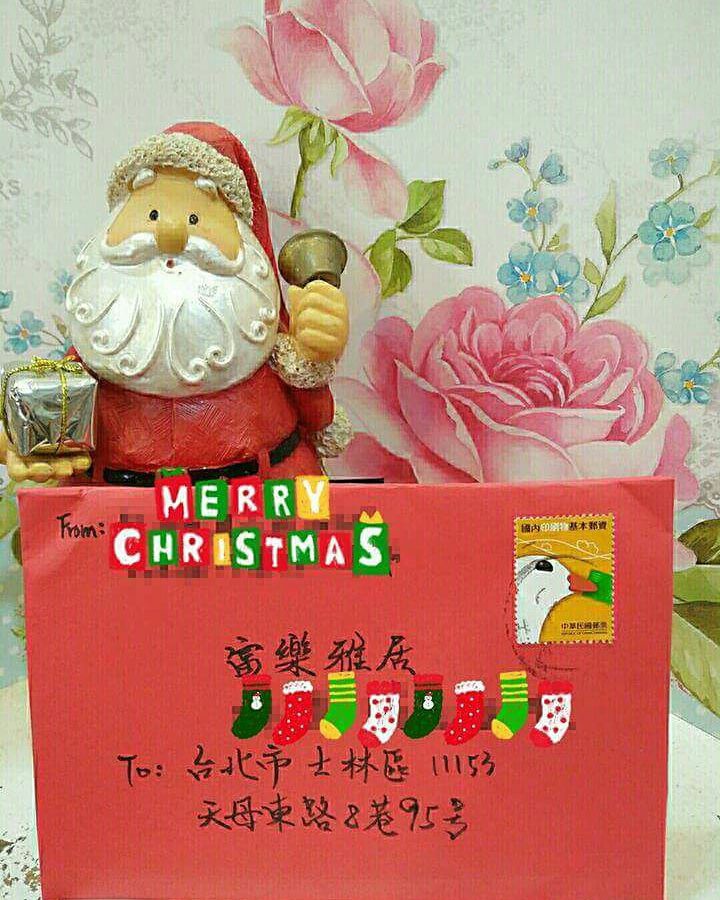 From:
MERRY
CHRISTMAS
國內印刷物基本郵資
中華民國郵票
REPUBLIC OF CHINA (TAIWAN)
富樂雅居
To: 台北市士林區 11153
天母東路8巷95号